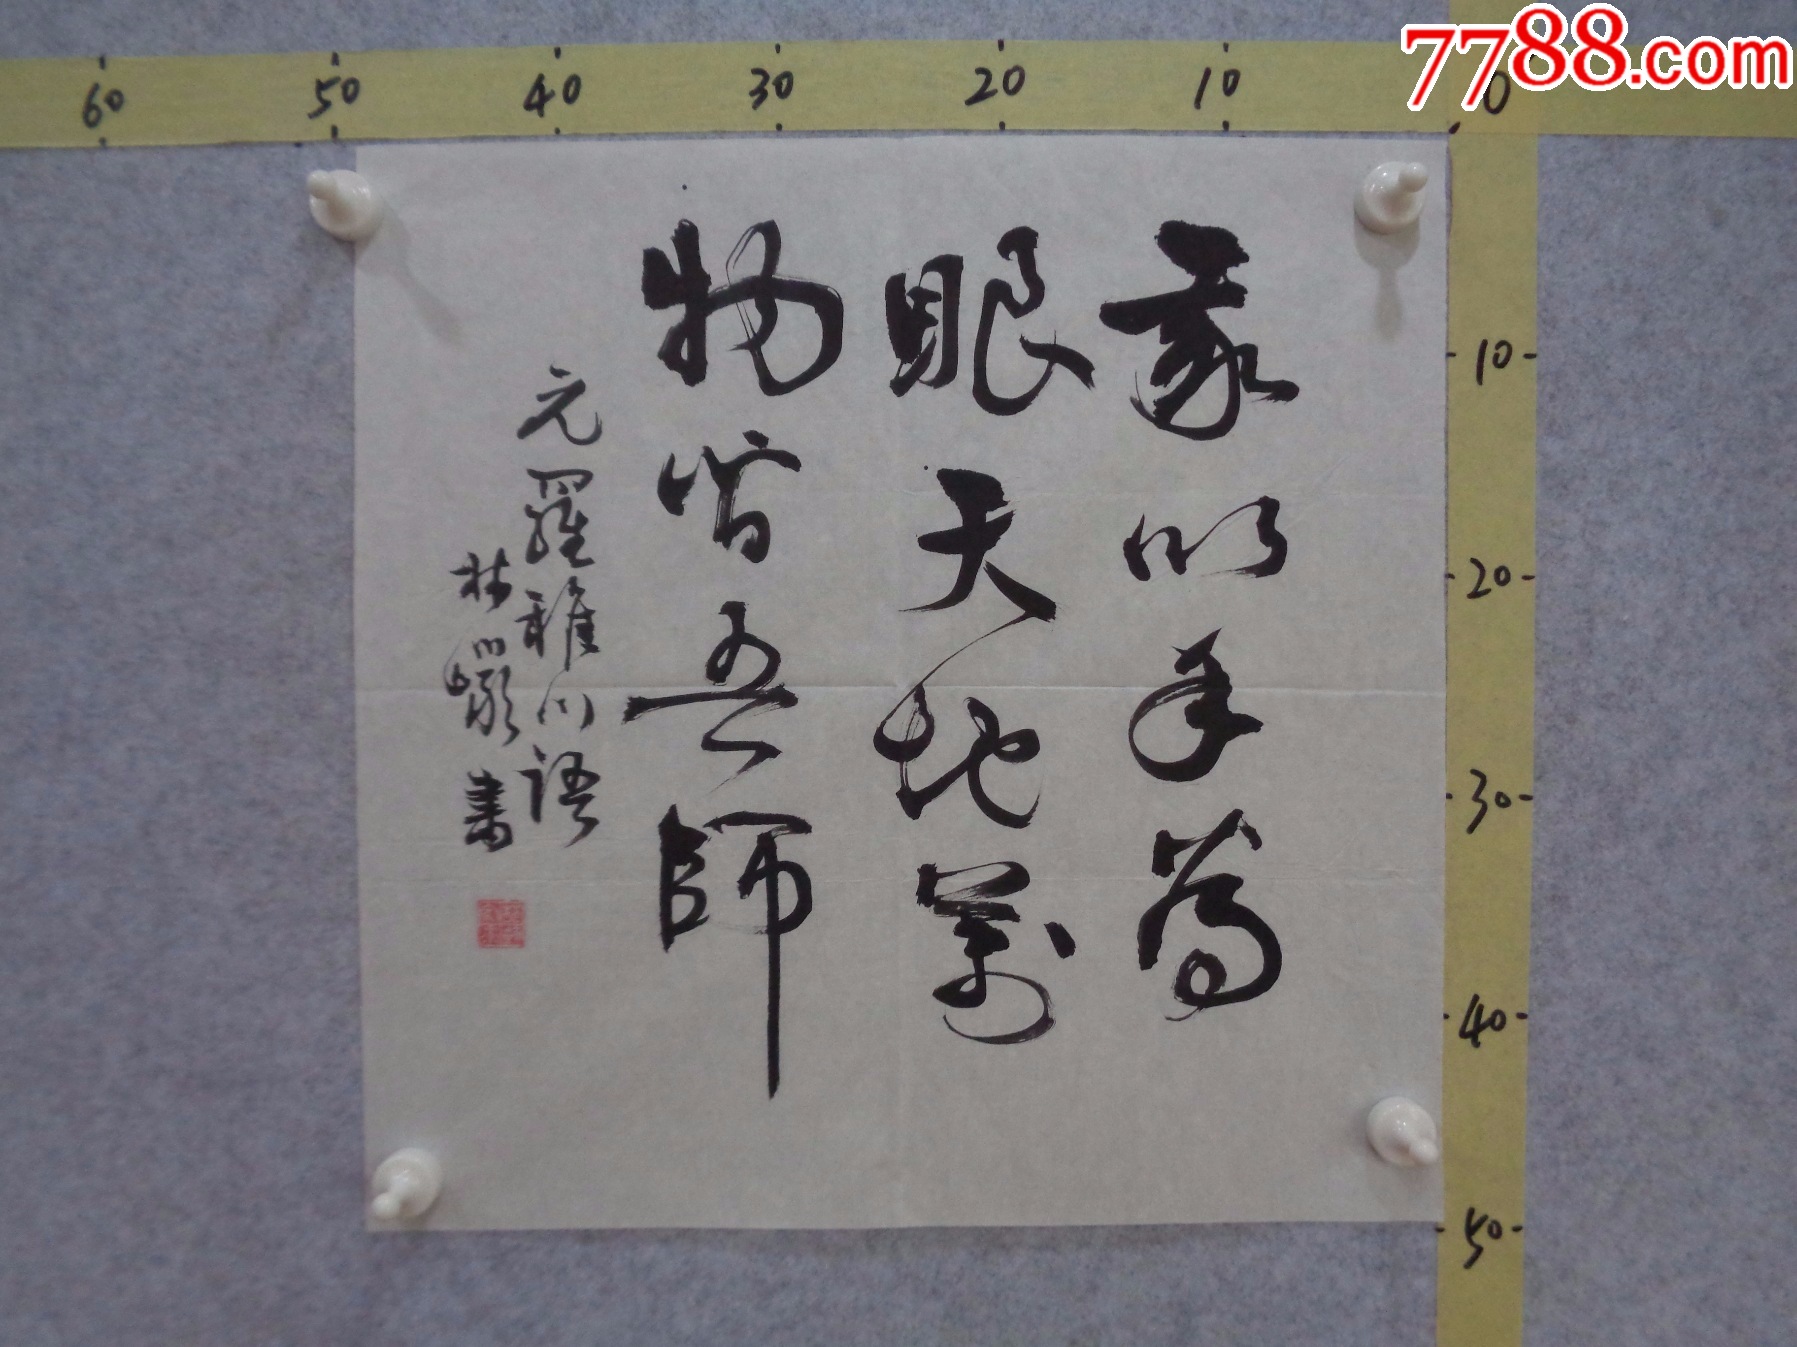 7788.com
60 50 40 30 20 10 0
10
20
30
40
50
我以手為
眼天地萬
物皆吾師
元羅稚川語
林 書